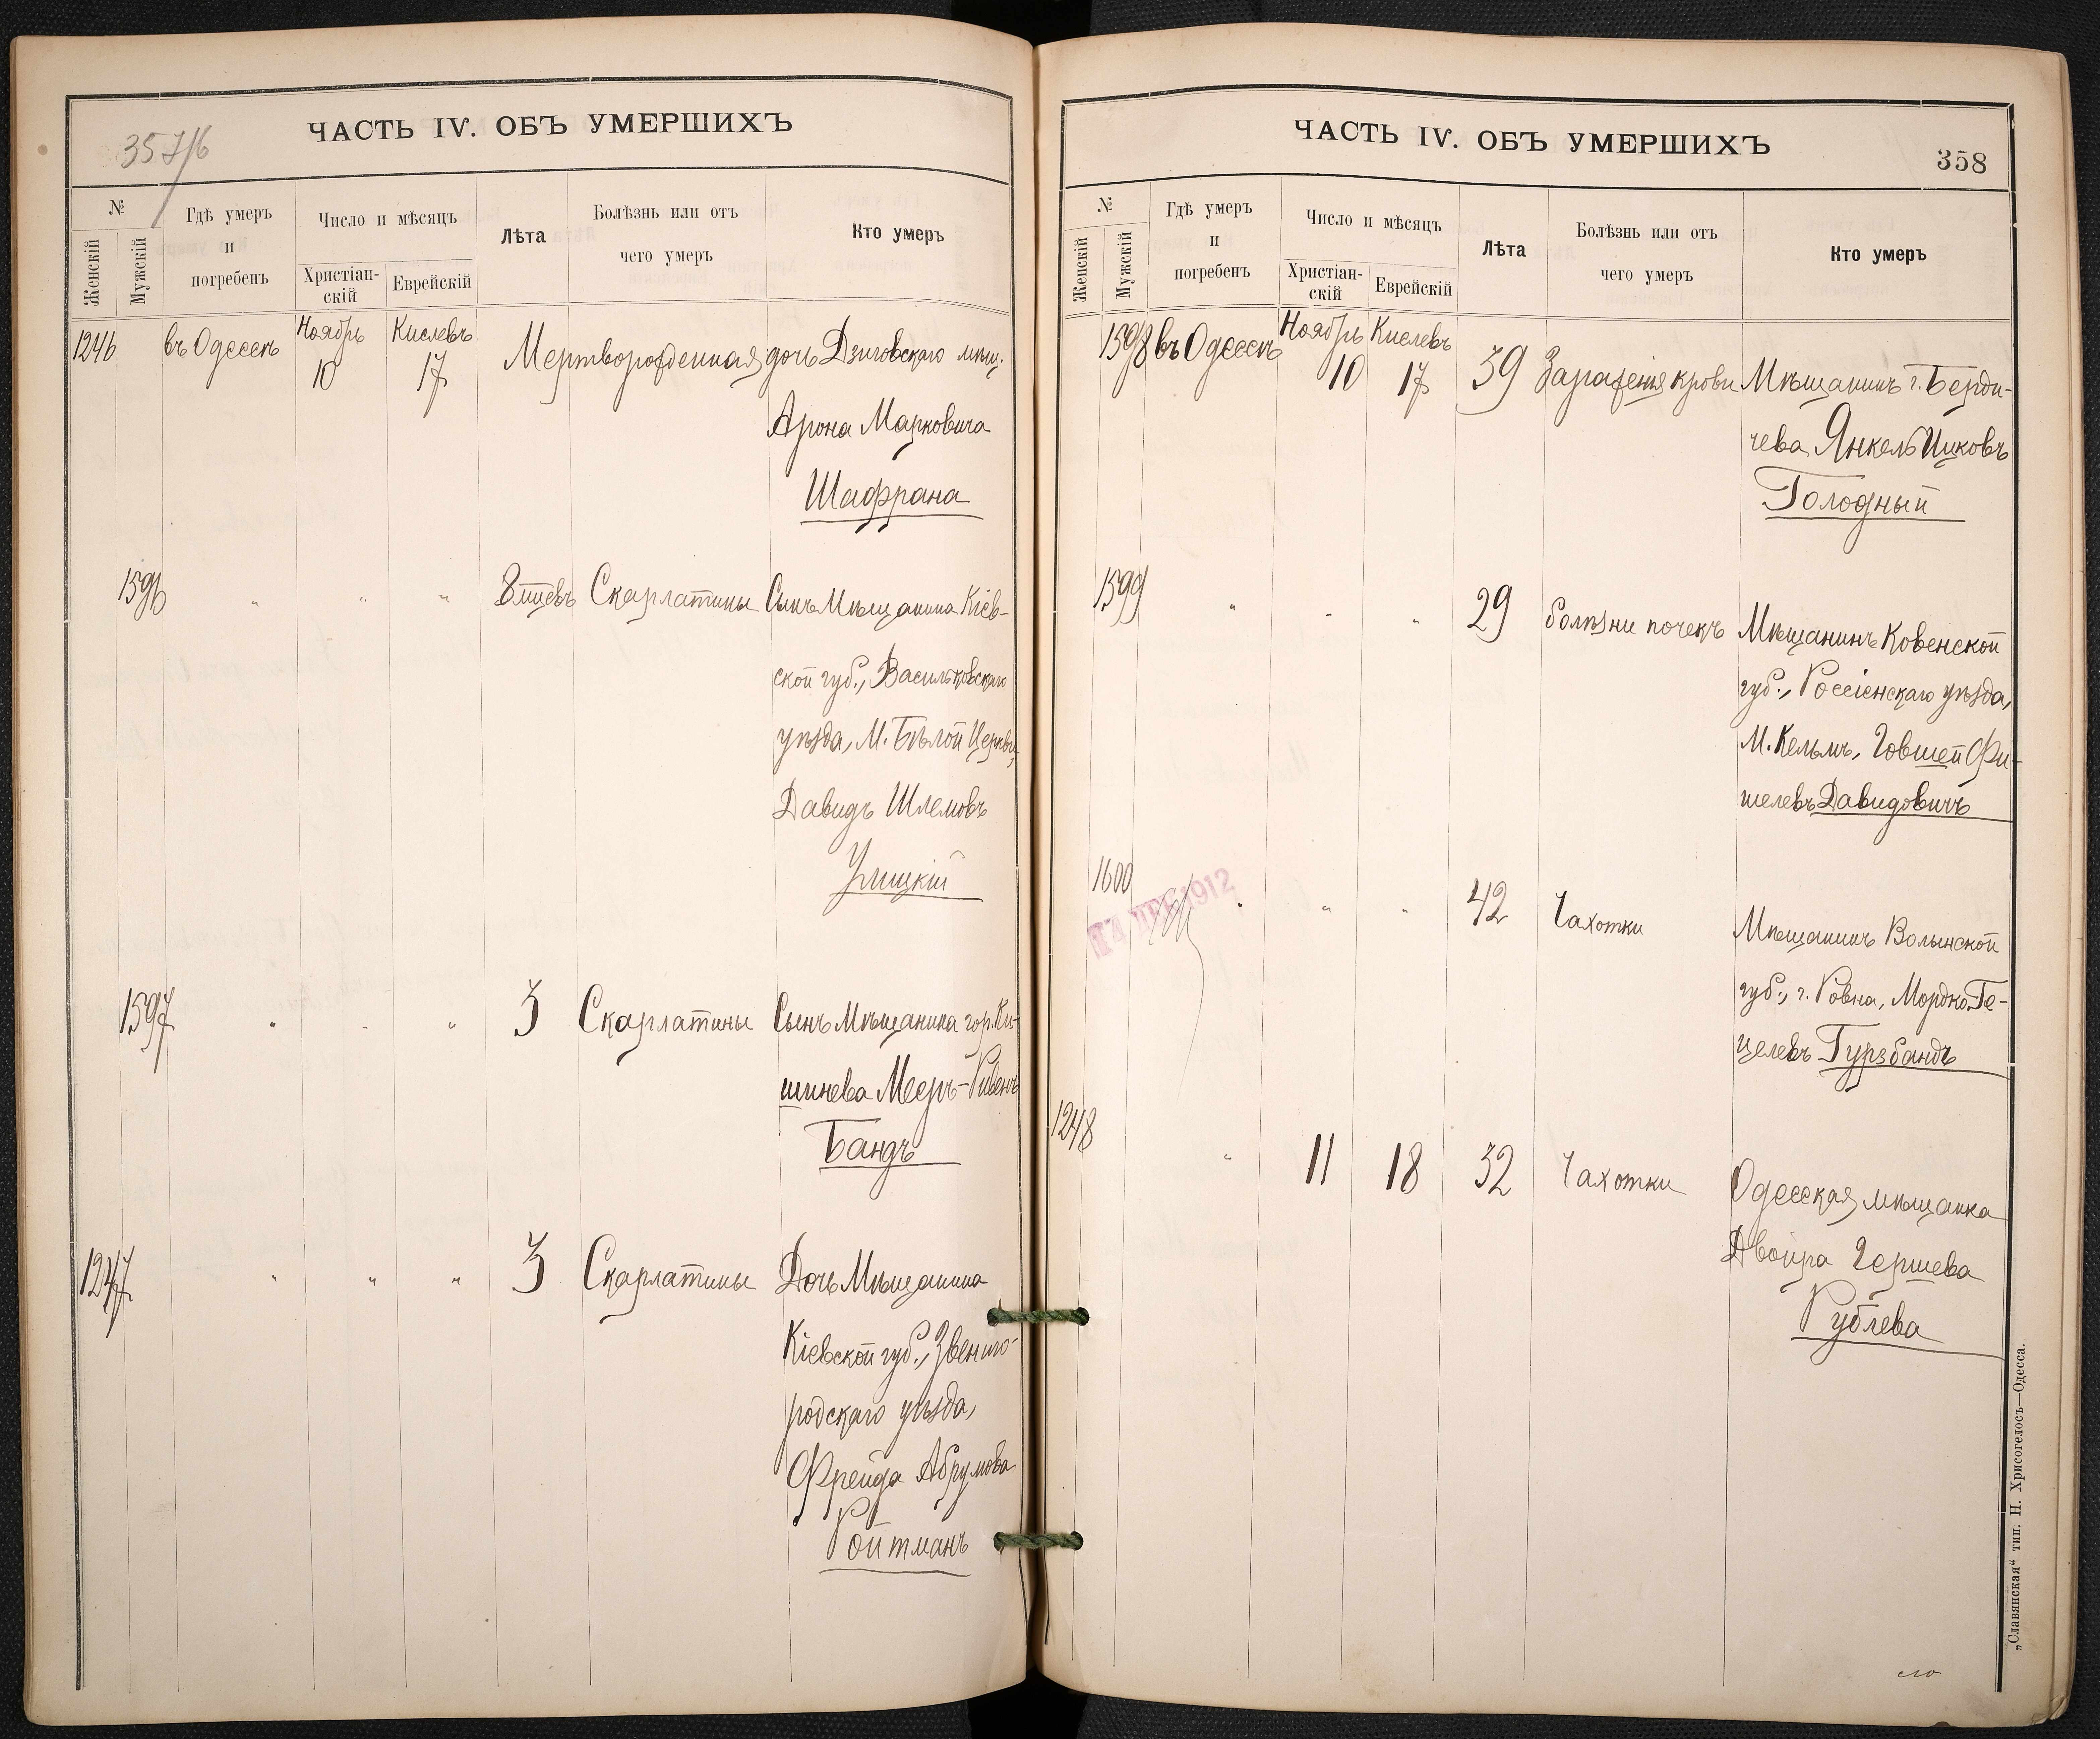 357/б
ЧАСТЬ IV. ОБЪ УМЕРШИХЪ
№
Женскій
Мужскій
Гдѣ умеръ
и
погребенъ
Число и мѣсяцъ
Христіан-
скій
Еврейскій
Лѣта
Болѣзнь или отъ
чего умеръ
Кто умеръ
1246 въ Одессѣ Ноябрь 10 Кислевъ 17 Мертворожденная дочь Дзиговскаго мѣщ.
Арона Марковича
Шафрана
1596 " " " 8 мцевъ Скарлатины Сынъ Мѣщанина Кіев-
ской губ., Васильковскаго
уѣзда, М. Бѣлой Церкви,
Давидъ Шлемовъ
Улицкій
1597 " " " 3 Скарлатины Сынъ Мѣщанина гор. Ки-
шинева Мееръ-Ривенъ
Бандъ
1247 " " " 3 Скарлатины Дочь Мѣщанина
Кіевской губ., Звениго-
родскаго уѣзда,
Фрейда Абрумова
Ройтманъ
ЧАСТЬ IV. ОБЪ УМЕРШИХЪ
358
№
Женскій
Мужскій
Гдѣ умеръ
и
погребенъ
Число и мѣсяцъ
Христіан-
скій
Еврейскій
Лѣта
Болѣзнь или отъ
чего умеръ
Кто умеръ
1598 въ Одессѣ Ноябрь 10 Кислевъ 17 39 Зараженія крови Мѣщанинъ г. Берди-
чева Янкель Ицковъ
Голодный
1599 " " " 29 болѣзни почекъ Мѣщанинъ Ковенской
губ., Россіенскаго уѣзда,
М. Кельмъ, Говшей Фи-
шелевъ Давидовичъ
1600 " " " 42 Чахотки Мѣщанинъ Волынской
губ., г. Ровна, Мордко Ге-
целевъ Гурзбандъ
1912
1248 " 11 18 32 Чахотки Одесская мѣщанка
Двойра Гершева
Рублева
„Славянская“ тип. Н. Хрисогелосъ—Одесса.